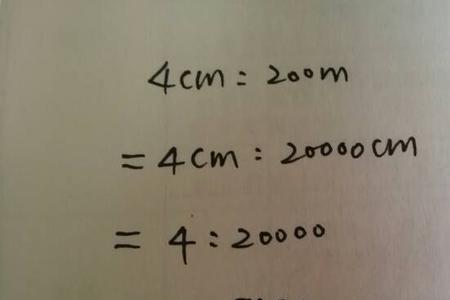 4cm : 200m
= 4cm : 20000cm
= 4 : 20000